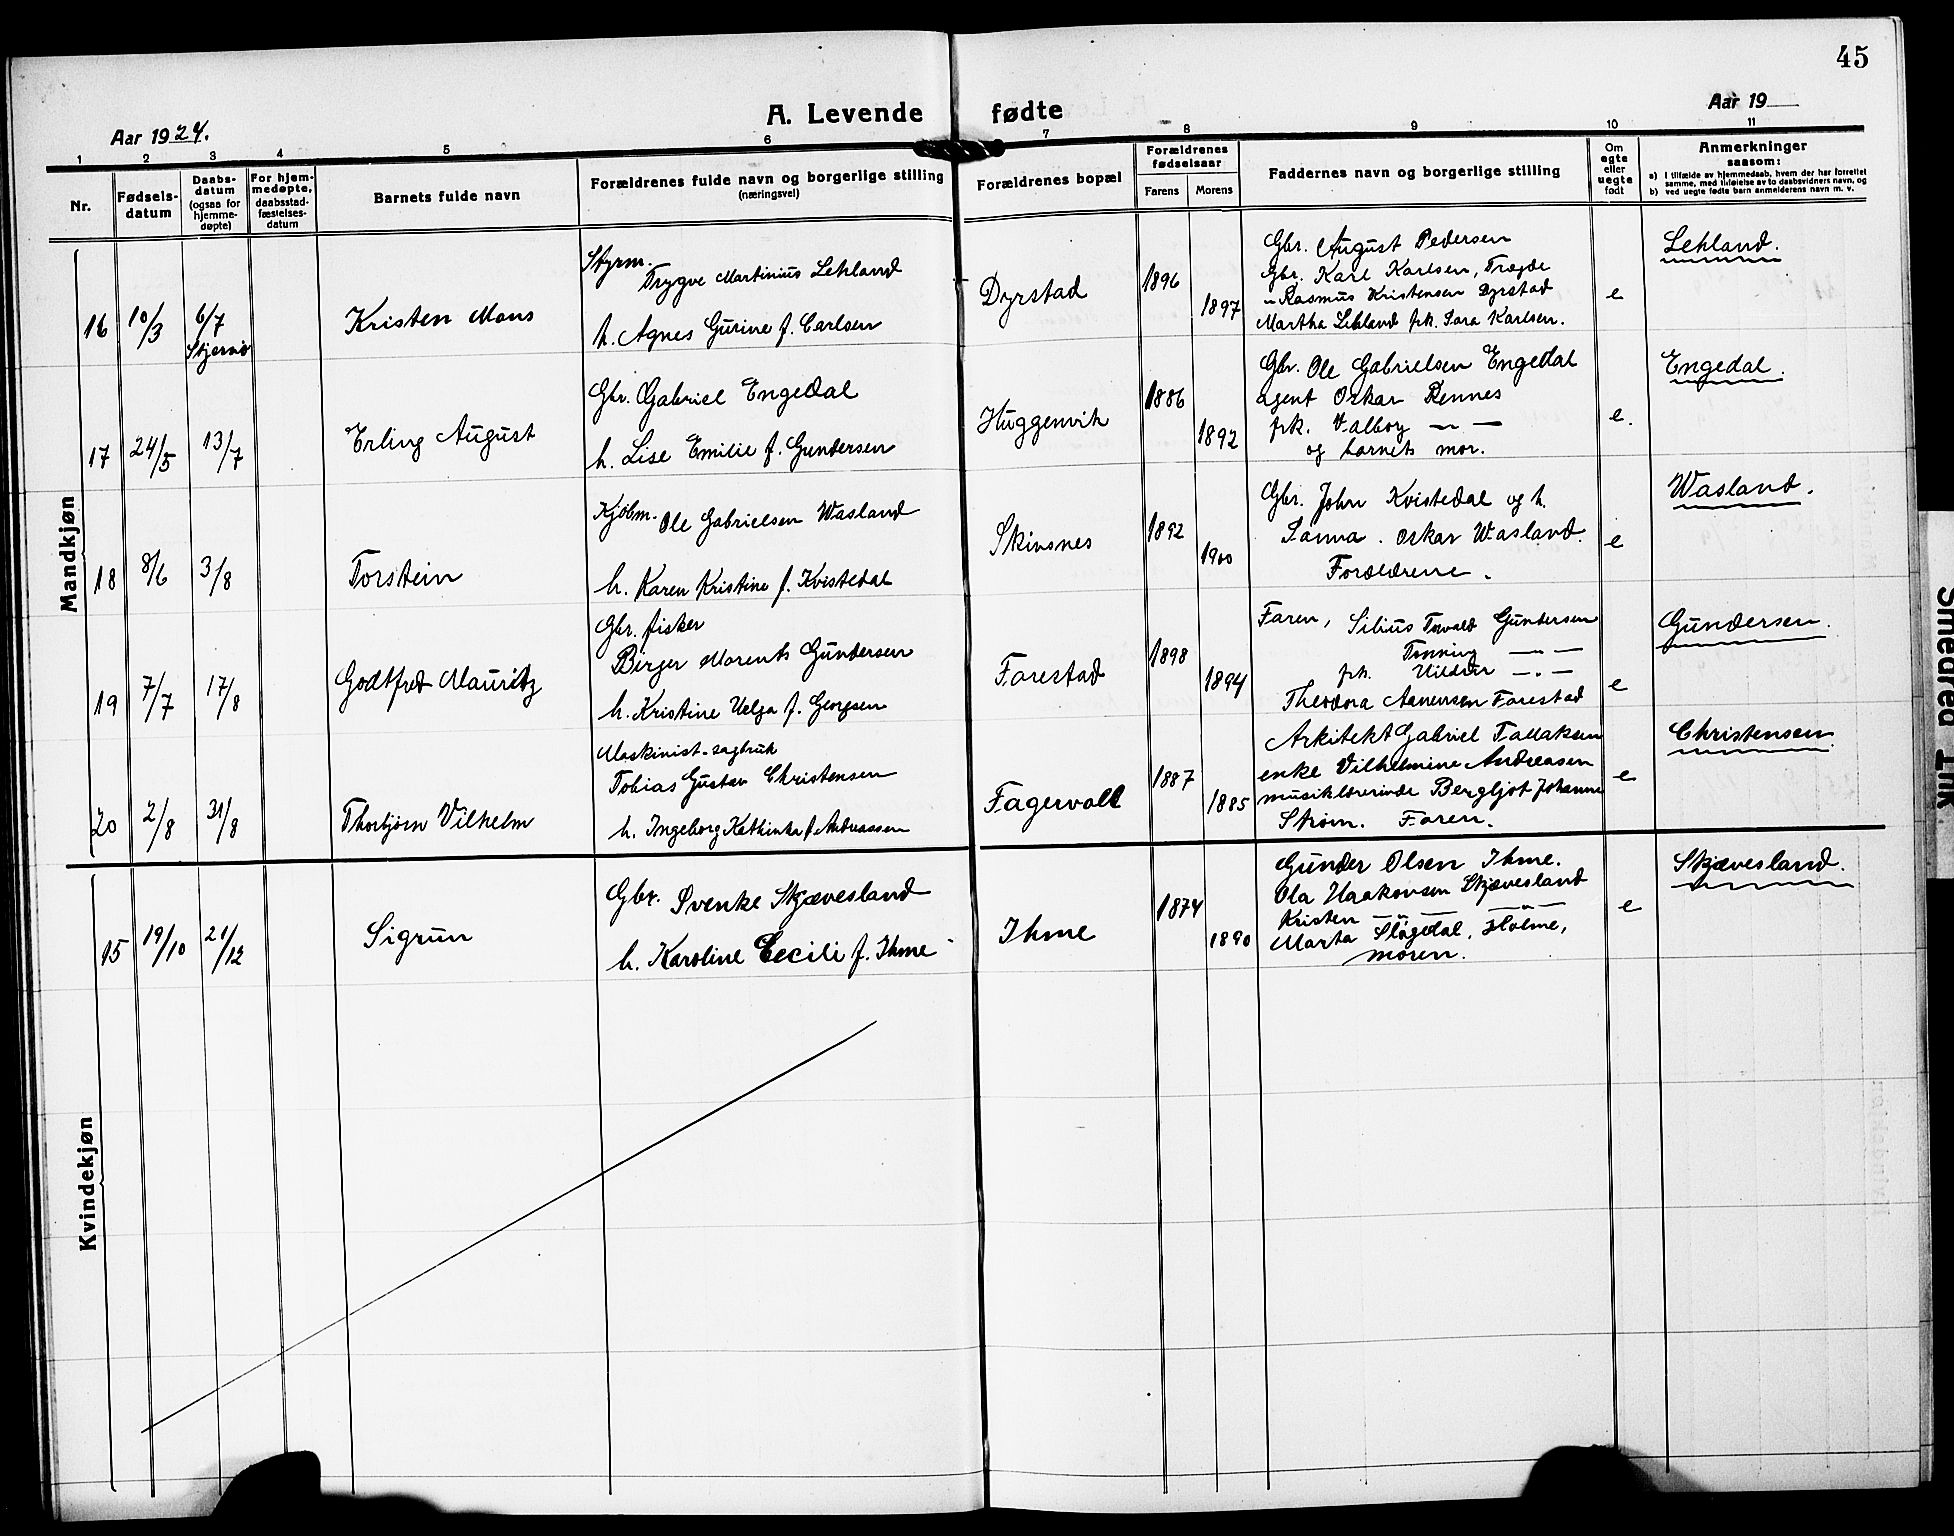 45
A. Levende fødte
Aar 1924.
Aar 19
1 2 3 4 5 6 7 8 9 10 11
Nr.
Fødsels-
datum
Daabs-
datum
(ogsaa for
hjemme-
døpte)
For hjem-
medøpte,
daabsstad-
fæstelses-
datum
Barnets fulde navn
Forældrenes fulde navn og borgerlige stilling
(næringsvei)
Forældrenes bopæl
Forældrenes
fødselsaar
Farens
Morens
Faddernes navn og borgerlige stilling
Om
egte
eller
uegte
født
Anmerkninger
saasom:
a) I tilfælde av hjemmedaab, hvem der har forrettet
samme, med tilføielse av to daabsvidners navn, og
b) ved uegte fødte barn anmelderens navn m. v.
Mandkjøn
16 10/3 6/7
Skjernø
Kristen Mons
Styrm.
Trygve Martinius Lehland
h. Agnes Gurine f. Carlsen
Dyrstad
1896
1897
Gbr. August Pedersen
Gbr. Karl Karlsen, Trægde
" Rasmus Kristensen Dyrstad
Martha Lehland frk. Sara Karlsen.
e
Lehland.
17 24/5 13/7
Erling August
Gbr. Gabriel Engedal
h. Lise Emilie f. Gundersen
Huggenvik
1886
1892
Gbr. Ole Gabrielsen Engedal
agent Oskar Rennes
frk. Valborg — " —
og barnets mor.
e.
Engedal.
18 8/6 3/8
Torstein
Kjøbm. Ole Gabrielsen Wasland
h. Karen Kristine f. Kvistedal
Skivsnes
1892
1900
Gbr. John Kvistedal og h.
Sanna. Oskar Wasland.
Forældrene.
e
Wasland.
19 7/7 17/8
Godtfred Mauritz
Gbr. fisker
Birger Morents Gundersen
h. Kristine Helga f. Georgsen
Farestad
1898
1894
Faren, Silius Torvald Gundersen
Tønning — " —
frk. Hildur — " —
Theodora Aanensen Farestad
e
Gundersen.
20 2/8 31/8
Thorbjørn Vilhelm
Maskinist - sagbruk
Tobias Gustav Christensen
h. Ingeborg Kathinka f. Andreassen
Fagervoll
1887
1885
Arkitekt Gabriel Tallaksen
enke Vilhelmine Andreasen
musiklærerinde Bergljot Johanne
Strøm. Faren.
e
Christensen
Kvindekjøn
15 19/10 21/12
Sigrun
Gbr. Svenke Skjævesland
h. Karoline Cecili f. Ihme
Ihme
1874
1890
Gunder Olsen Ihme.
Ola Haakonsen Skjævesland
Kristen — " — — " —
Marta Sløgedal, Holme,
moren.
e
Skjævesland.
Smedrea